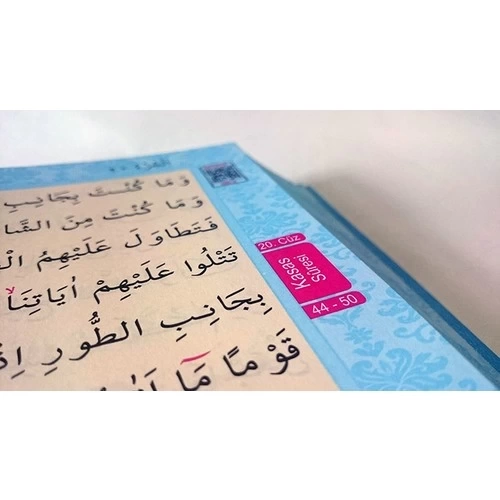 وَمَا كُنْتَ بِجَانِبِ
وَمَا كُنْتَ مِنَ الشَّا
فَتَطَاوَلَ عَلَيْهِمُ الْ
تَتْلُوا عَلَيْهِمْ اٰيَاتِنَا
بِجَانِبِ الطُّورِ اِذْ
قَوْمًا مَٓا
20. Cüz
Kasas
Sûresi
44 - 50